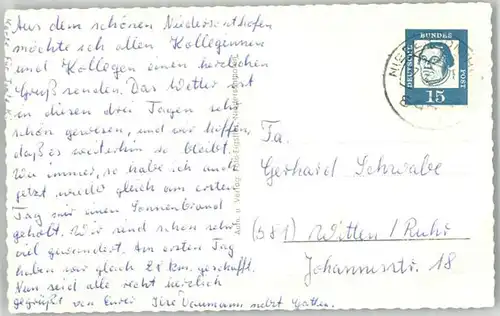 Aus dem schönen Niedersonthofen
möchte ich allen Kolleginnen
und Kollegen einen herzlichen
Gruß senden. Das Wetter ist
in diesen drei Tagen sehr
schön gewesen, und wir hoffen,
daß es weiterhin so bleibt.
Wie immer, so habe ich auch
jetzt wieder gleich am ersten
Tag mir einen Sonnenbrand
geholt. Wir sind schon sehr
viel gewandert. Am ersten Tag
haben wir gleich 28 km. geschafft.
Nun seid alle recht herzlich
gegrüßt von Eurer Ilse Naumann nebst Gatten.
DEUTSCHE BUNDES POST
15
Fa.
Gerhard Schwabe
(581) Witten / Ruhr
Johannisstr. 18